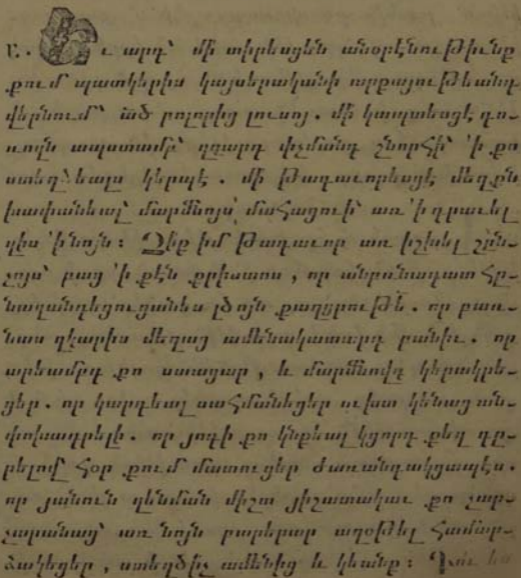 Ե. Եւ արդ՝ մի տիրեսցեն անօրէնութիւնք
քում պատկերիս կայսերականի արքայութեանդ
վերնում՝ ած բոլորից լուսոյ. մի կապտեսցէ գո-
ւողն ապստամբ՝ զզարդ փչմանդ շնորհի ՚ի քո
ստեղծեալս կերպէ. մի թագաւորեսցէ մեղքն
խափանեալ՝ մարմնոյս մահացուի՝ առ ՚ի գրաւել
զիս ՚ի նոյն։ Չիք իմ թագաւոր առ իշխել շըն-
չոյս՝ բաց ՚ի քէն քրիստոս, որ անբռնադատ հը-
նազանդեցուցանես լծոյն քաղցրութե. որ բառ-
նաս զկարիս մեղաց ամենակատարդ բանիւ. որ
արեամբդ քո ստացար, և մարմնովդ կերակրե-
ցեր. որ կարդեալ սահմանեցեր ուխտ կենաց ան-
փոխադրելի. որ յոգի քո կնքեալ կցորդ քեզ գը-
րելով՝ հօր քում մատուցեր ժառանգակցապէս.
որ յանուն զենման միշտ յիշատակաւ քո չար-
չարանաց՝ առ նոյն բարերար աղօթել համար-
ձակեցեր, ստեղծիչ ամենից և կեանք։ Դու ես